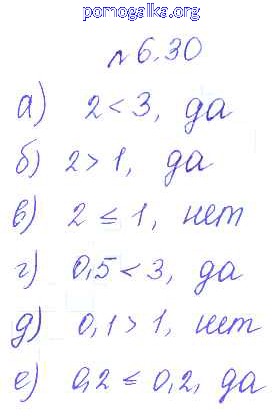 pomogalka.org
№ 6.30
а) 2 < 3, да
б) 2 > 1, да
в) 2 ≤ 1, нет
г) 0,5 < 3, да
д) 0,1 > 1, нет
е) 0,2 ≤ 0,2, да